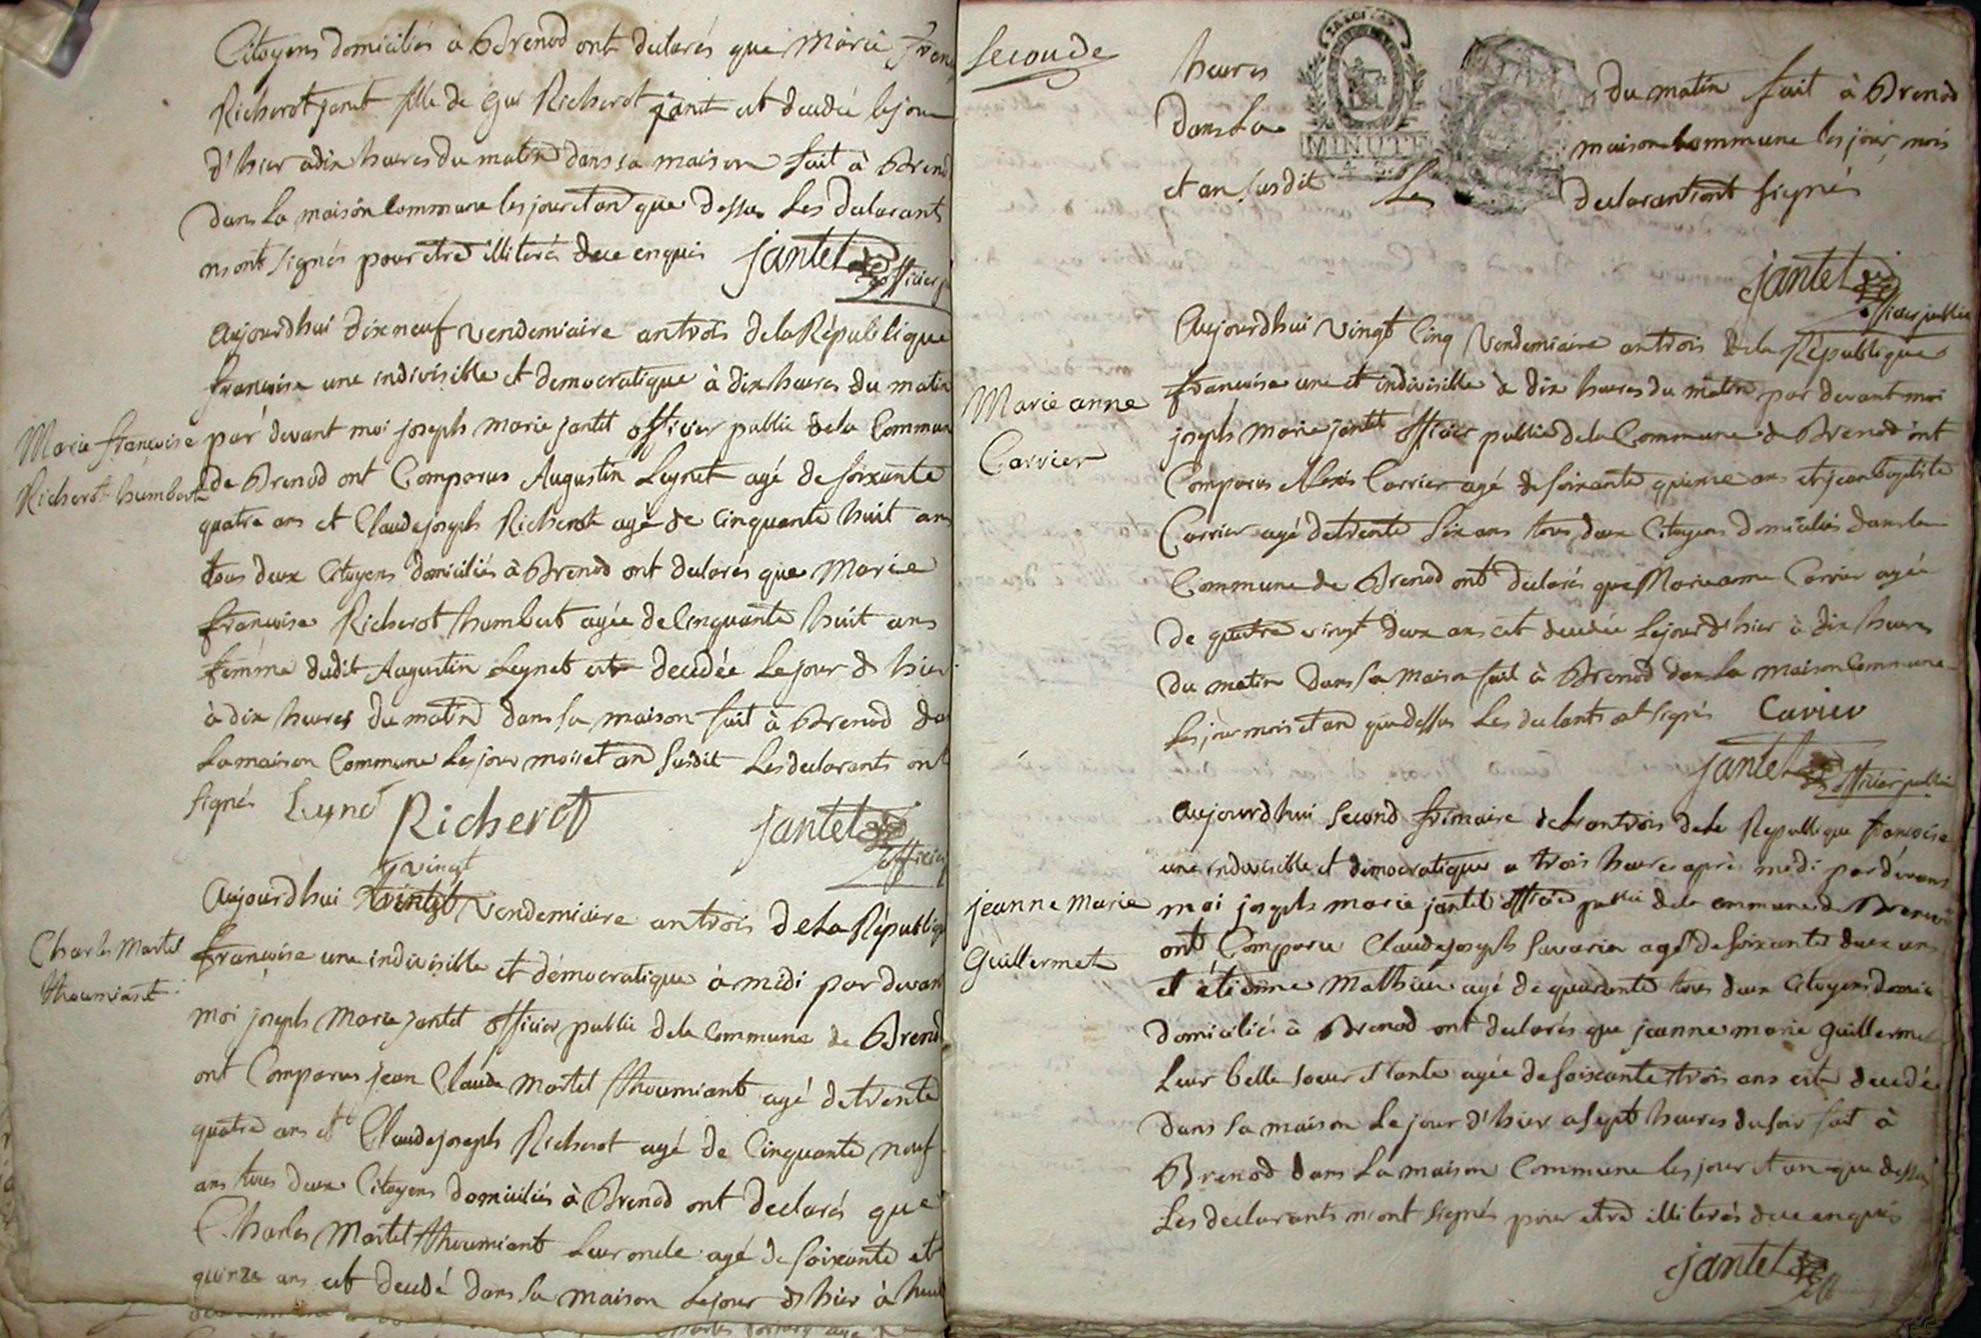 Citoyens domiciliés à Brenod ont declarés que Marie
Richerot jantet fille de Richerot jantet est decedée le jour
d'hier a dix heures du matin dans sa maison fait à Brenod
dans la maison Commune les jour et an que dessus Les declarants
n'ont signés pour etre illiterés de ce enquis jantet officier
aujourdhui dix neuf vendemiaire an trois de la République
françoise une indivisible et democratique à dix heures du matin
Marie françoise
Richerot humbert
par devant moi joseph marie jantet officier public de la Commune
de Brenod ont Comparus Augustin Leynet agé de soixante
quatre ans et Claude joseph Richerot agé de Cinquante huit ans
tous deux Citoyens domiciliés à Brenod ont declarés que Marie
françoise Richerot humbert agée de Cinquante huit ans
femme dudit Augustin Leynet est decedée Le jour d hier
à dix heures du matin dans sa maison fait à Brenod
La maison Commune Les jour mois et an susdit Les declarants ont
signés Richerot jantet officier
vingt
aujourdhui vendemiaire an trois de La République
Charles Martel
thoumiant
françoise une indivisible et démocratique à midi par devant
moi joseph Marie jantet officier public de la Commune de Brenod
ont Comparus jean Claude Martel thoumiant agé de trente
quatre ans et Claude joseph Richerot agé de Cinquante neuf
ans tous deux Citoyens domiciliés à Brenod ont declarés que
Charles Martel thoumiant Leur oncle agé de soixante et
quinze ans est decedé dans sa maison Le jour d hier à huit
Seconde
heures du matin fait à Brenod
dans La maison Commune les jour mois
MINUTE
et an susdit Les declarants ont signés
jantet
officier public
Aujourdhui vingt Cinq Vendemiaire an trois de la République
Marie anne
Carrier
françoise une et indivisible à dix heures du matin par devant moi
joseph marie jantet officier public de la Commune de Brenod ont
Comparus Alexis Carrier agé de soixante quinze ans et jean baptiste
Carrier agé de trente six ans tous deux Citoyens domiciliés dans la
Commune de Brenod ont declarés que Marie anne Carrier agée
de quatre vingt deux ans est decedée Le jour d'hier à dix heures
du matin dans sa maison fait à Brenod dans La maison Commune
Les jour mois et an que dessus Les ont signés
jantet officier public
aujourdhui second frimaire de an trois de la République françoise
une indivisible et démocratique a trois heures après midi par devant
jeanne Marie
Guillermet
moi joseph marie jantet officier public de la commune de Brenod
ont Comparu Claude joseph Savarin agé de soixante deux ans
et étienne Mathieu agé de quarante tous deux Citoyens
domiciliés à Brenod ont declarés que jeanne marie guillermet
Leur belle soeur et tante agée de soixante trois ans est decedée
dans sa maison Le jour d'hier a sept heures du soir fait à
Brenod dans La maison Commune les jour et an que dessus
Les declarants n'ont signés pour etre illiterés de ce enquis
jantet